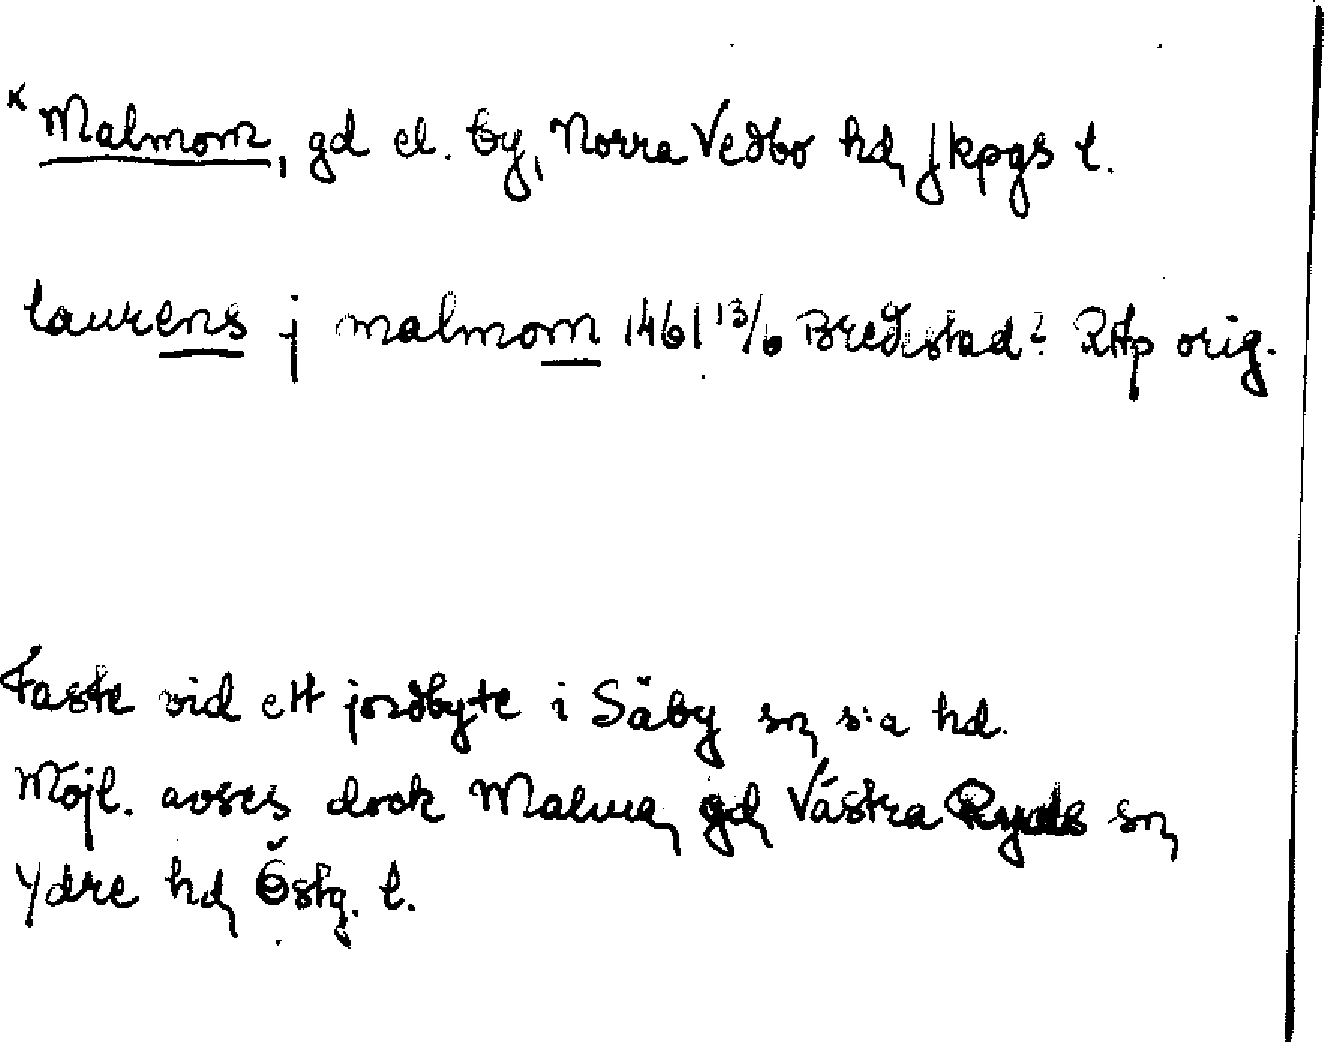 × Malmom, gd el. by, Norra Vedbo hd, Jkpgs l.
laurens j malmom 1461 13/6 Bredestad? RAp orig.
Faste vid ett jordbyte i Säby sn, s:a hd.
Möjl. avses dock Malma, gd, Västra Ryds sn,
Ydre hd, Östg. l.